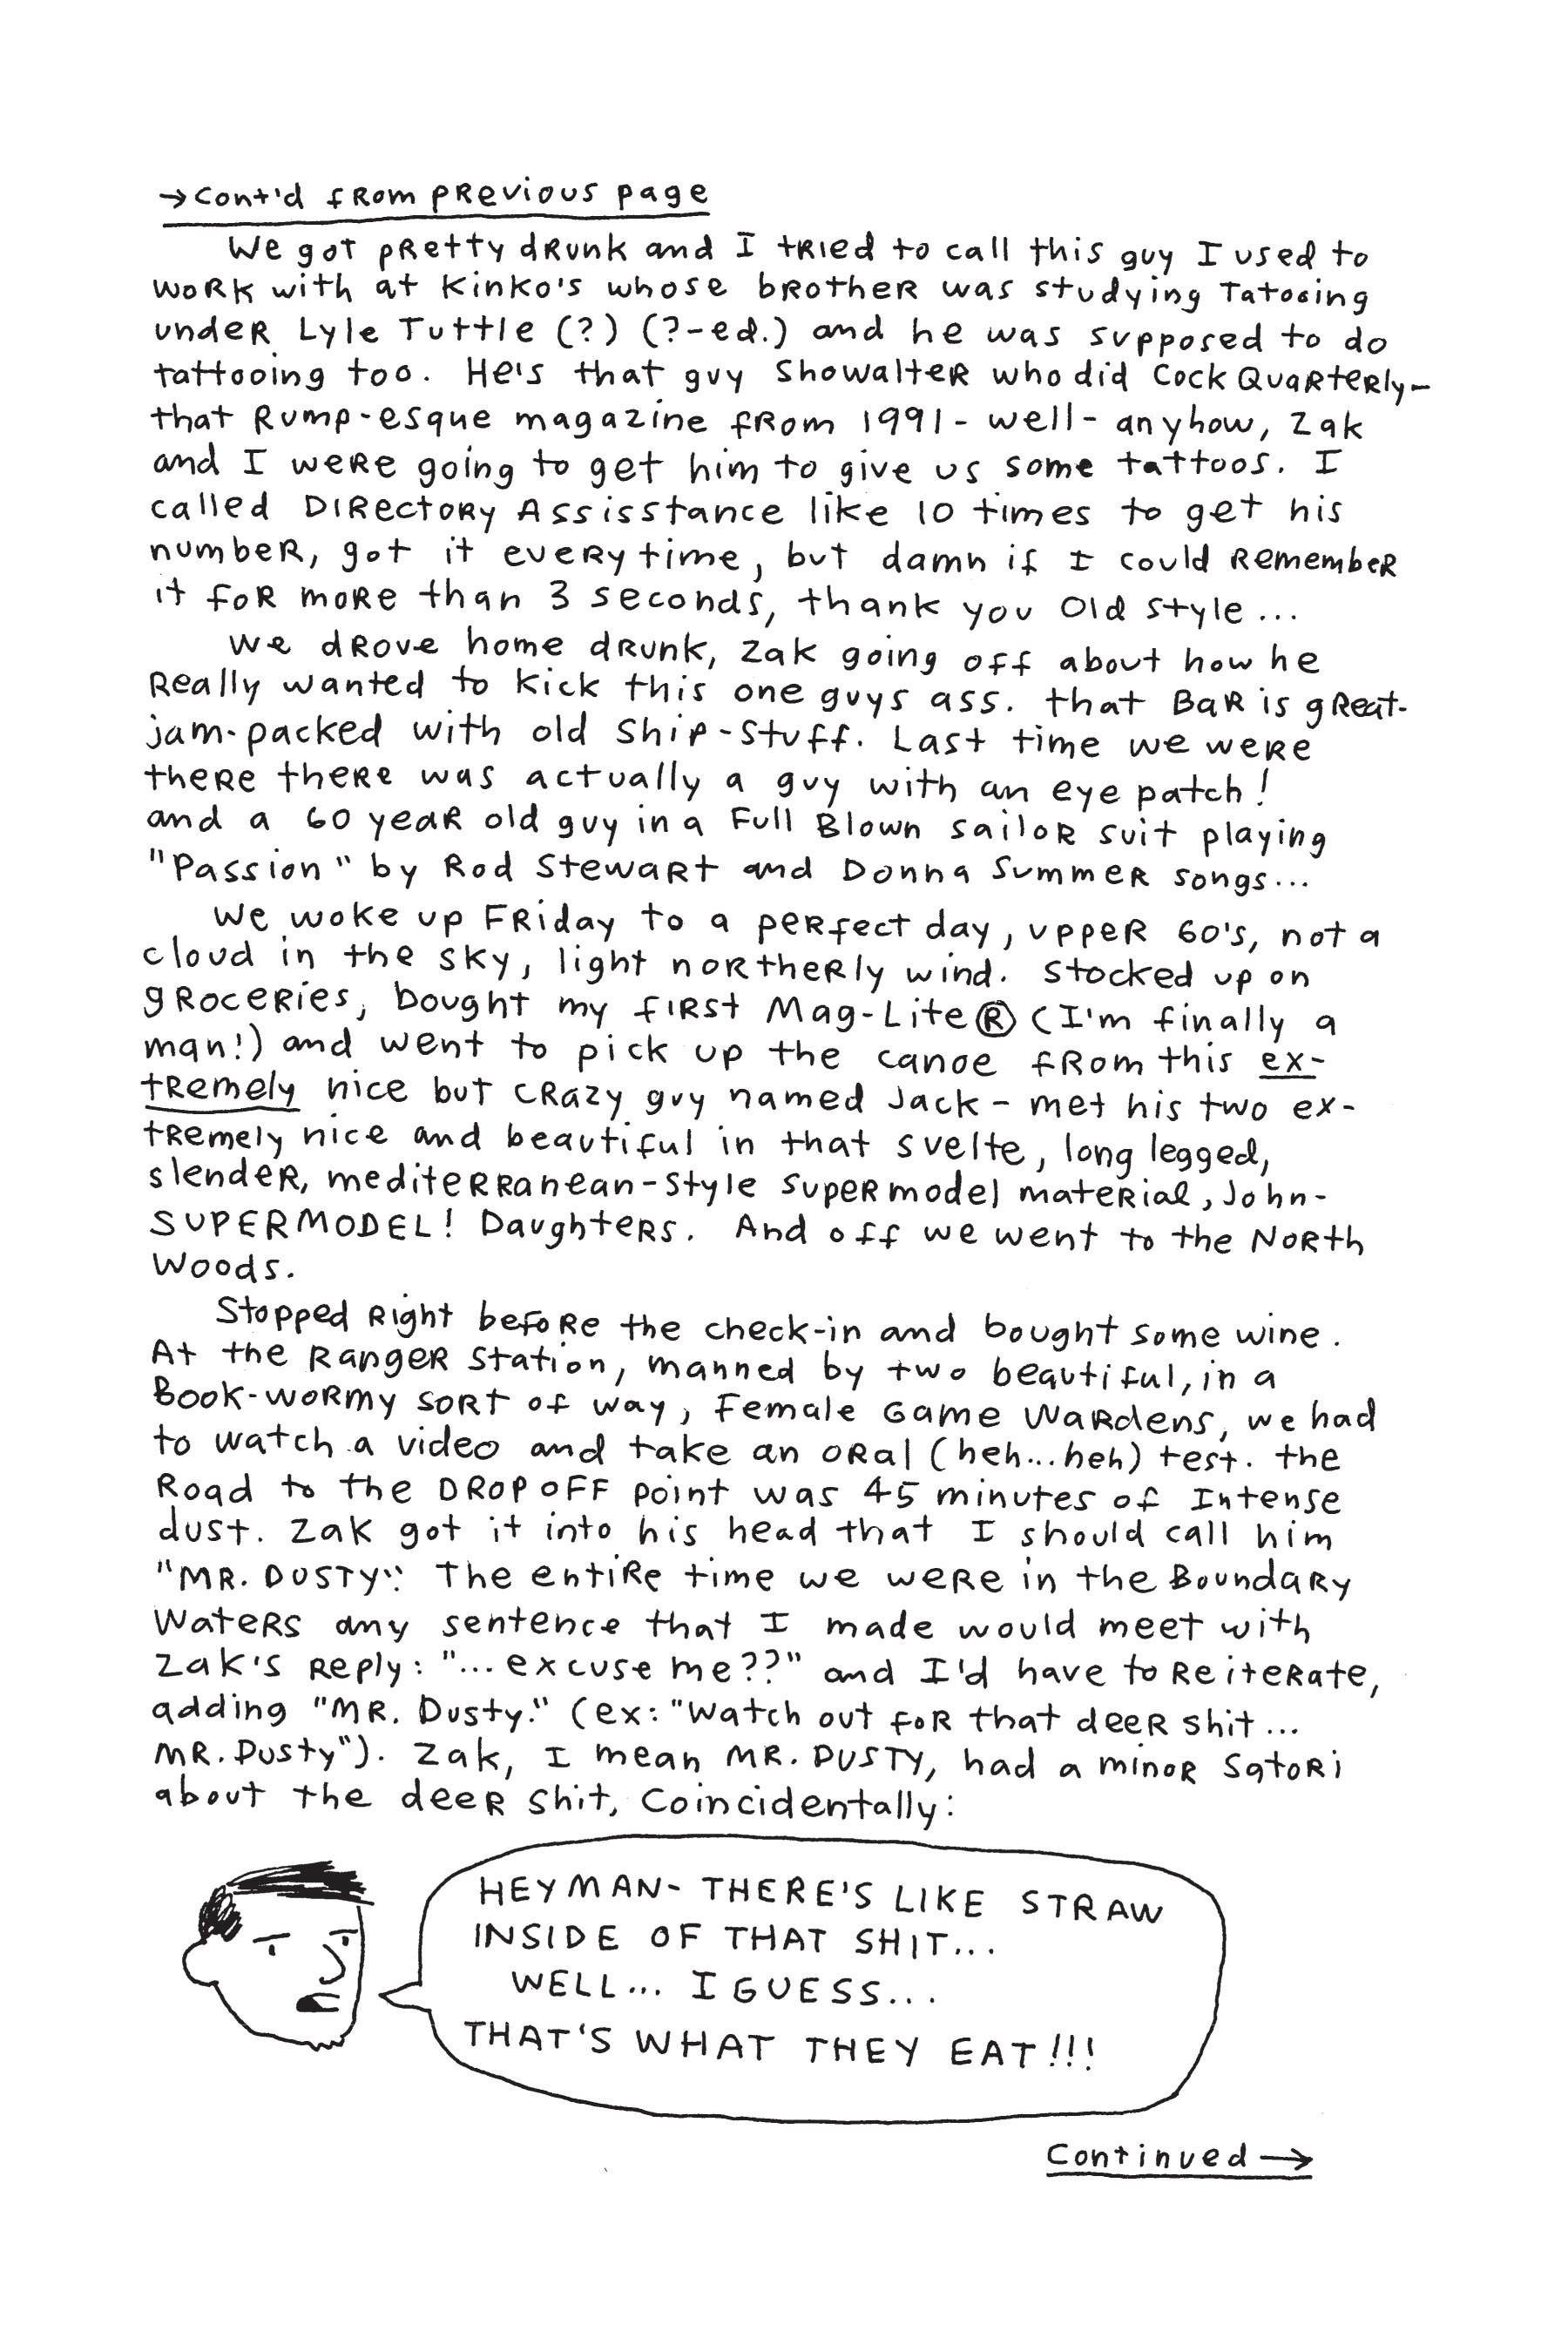 →Cont'd from previous page
We got pretty drunk and I tried to call this guy I used to
work with at Kinko's whose brother was studying Tatooing
under Lyle Tuttle (?) (?-ed.) and he was supposed to do
tattooing too. He's that guy Showalter who did Cock Quarterly-
that Rump-esque magazine from 1991- well- anyhow, Zak
and I were going to get him to give us some tattoos. I
called Directory Assisstance like 10 times to get his
number, got it every time, but damn if I could remember
it for more than 3 seconds, thank you Old Style...
We drove home drunk, Zak going off about how he
Really wanted to kick this one guys ass. that Bar is great-
jam-packed with old Ship-Stuff. Last time we were
there there was actually a guy with an eye patch!
and a 60 year old guy in a Full Blown sailor suit playing
"Passion" by Rod Stewart and Donna Summer songs...
We woke up Friday to a perfect day, upper 60's, not a
cloud in the sky, light northerly wind. Stocked up on
groceries, bought my first Mag-Lite® (I'm finally a
man!) and went to pick up the canoe from this ex-
tremely nice but crazy guy named Jack - met his two ex-
tremely nice and beautiful in that svelte, long legged,
slender, mediterranean-style supermodel material, John-
SUPERMODEL! Daughters. And off we went to the North
Woods.
Stopped right before the check-in and bought some wine.
At the Ranger Station, manned by two beautiful, in a
Book-wormy sort of way, Female Game Wardens, we had
to watch a video and take an oral (heh...heh) test. the
Road to the DROP OFF point was 45 minutes of Intense
dust. Zak got it into his head that I should call him
"MR. DUSTY". The entire time we were in the Boundary
Waters any sentence that I made would meet with
Zak's reply: "...excuse me??" and I'd have to reiterate,
adding "MR. Dusty." (ex: "Watch out for that deer shit...
MR. Dusty"). Zak, I mean MR. DUSTY, had a minor Satori
about the deer shit, Coincidentally:
HEY MAN- THERE'S LIKE STRAW
INSIDE OF THAT SHIT...
WELL... I GUESS...
THAT'S WHAT THEY EAT!!!
Continued→